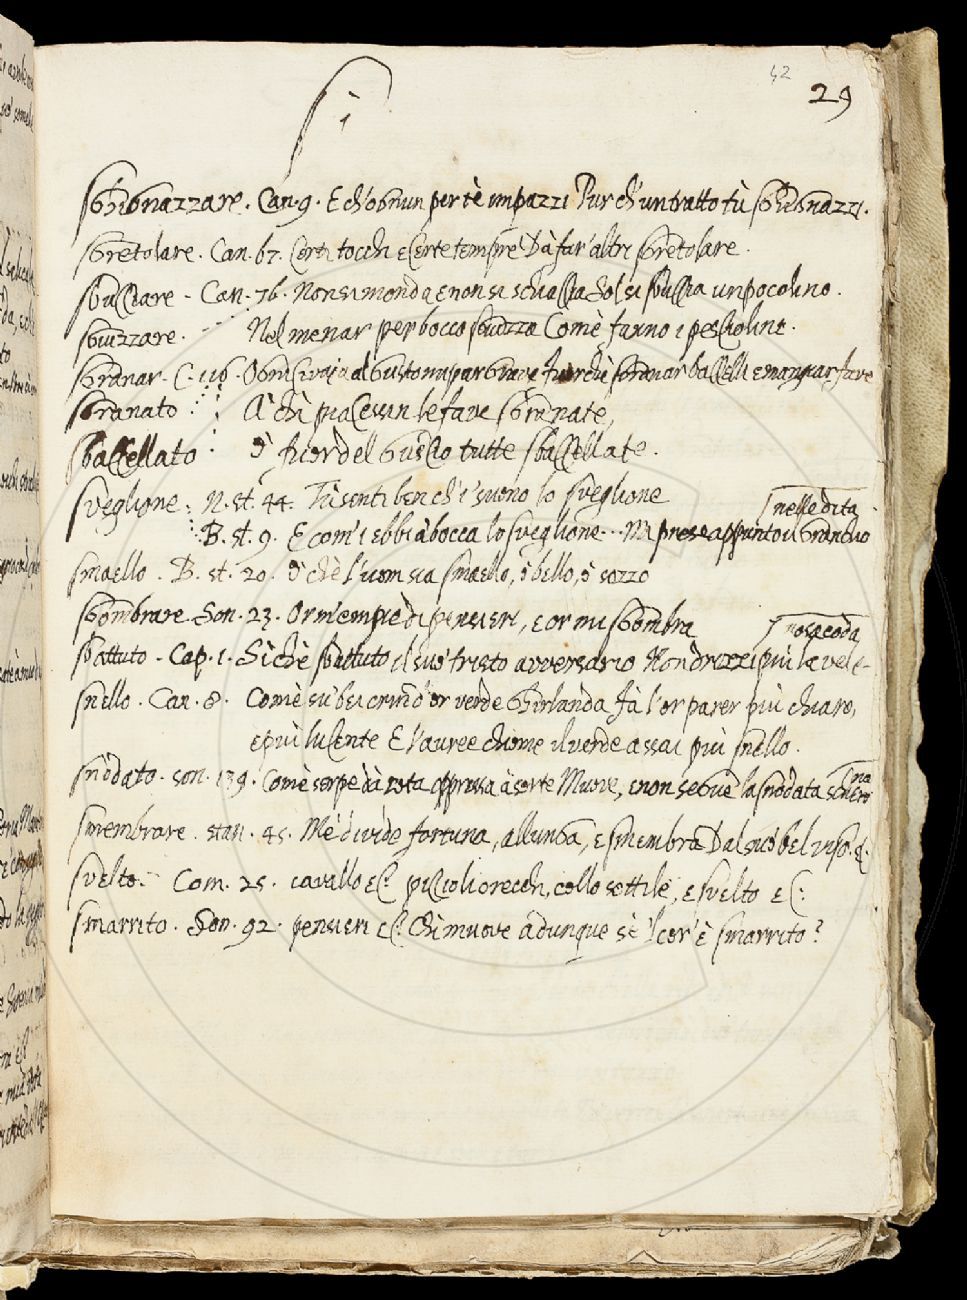 42
29
S i
sghignazzare. Can. 9. E ch'ognun per tè impazzi Pur ch'un tratto tù sghignazzi.
sgretolare. Can. 67. Certi tocchi e certe tempre Dà far' altri sgretolare.
sbucciare - Can. 76. Non si monda e non si Sol si sbuccia un pocolino.
sguizzare. Nel menar per bocca sguizza Come fanno i pesciolini.
sgranar. C. 116. Ogni civaia al gusto mi par grave fuor chè sgranar baccelli e mangiar fave
sgranato A' chi piaccian le fave sgranate,
sbaccellato ò fuor del guscio tutte sbaccellate.
sveglione: N. st. 44. Tù senti ben ch'i' suono lo sveglione
nelle dita
B. st. 9. E com' i ebbi à bocca lo sveglione... Mi prese appunto il granchio
smaello. B. st. 20. ò che l'uom sia smaello, ò bello, ò sozzo
sgombrare. Son. 23. Or m'empie di pensieri, e or mi sgombra
nosa coda
sbattuto - Cap. 1. Sì chè sbattuto il suo tristo avversario Non drizzi più la vele-
snello. Can. 8. Come sù bei crin d'or verde Ghirlanda Fà l'or parer più chiaro,
e più lucente E l'auree chiome il verde assai più snello.
na
snodato. son. 139. Come serpe dà rota oppressa à sorte Muove, e non segue la snodata
smembrare. stan. 45. Me divide fortuna, allunga, e smembra Dal suo bel viso &.
svelto. Com. 25. cavallo &c: piccioli orecchi, collo sottile, e svelto &c:
smarrito. Son. 92. pensieri &c: Chi muove adunque se 'l cor' è smarrito?